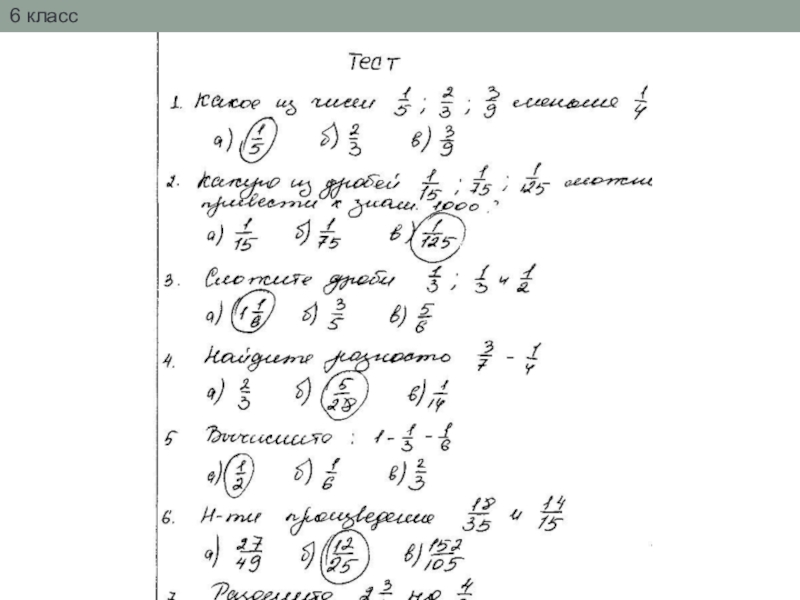 6 класс
Тест
1. Какое из чисел 1/5 ; 2/3 ; 3/9 меньше 1/4
а) 1/5 б) 2/3 в) 3/9
2. Какую из дробей 1/15 ; 1/75 ; 1/125 можно
привести к знам. 1000?
а) 1/15 б) 1/75 в) 1/125
3. Сложите дроби 1/3 ; 1/3 и 1/2
а) 1 1/6 б) 3/5 в) 5/6
4. Найдите разность 3/7 - 1/4
а) 2/3 б) 5/28 в) 1/14
5 Вычислить : 1 - 1/3 - 1/6
а) 1/2 б) 1/6 в) 2/3
6. Н-ти произведение 18/35 и 14/15
а) 27/49 б) 12/25 в) 152/105
7. Разделить 2 3/ на 4/